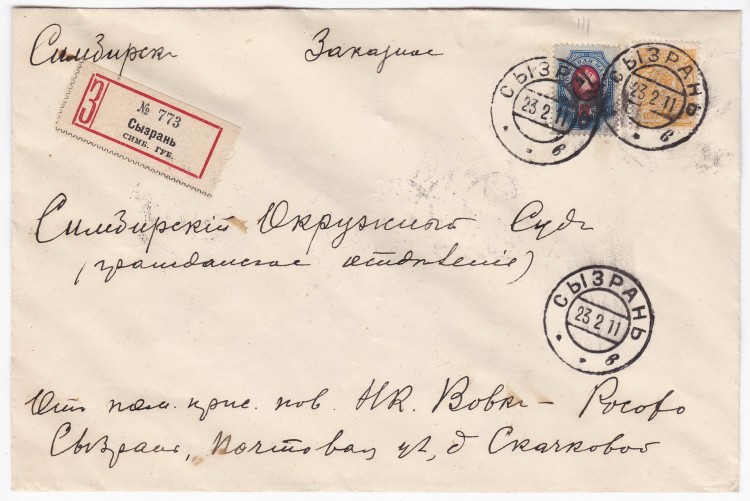 Симбирск Заказное
З
№ 773
Сызрань
СИМБ. ГУБ.
СЫЗРАНЬ
23 2 11
в
СЫЗРАНЬ
23 2 11
в
Симбирскій Окружный Судъ
(гражданское отдѣленіе)
СЫЗРАНЬ
23 2 11
в
Отъ пом. прис. пов. Н.К. Вовкъ-Росохо
Сызрань, Почтовая ул, д Скачковой